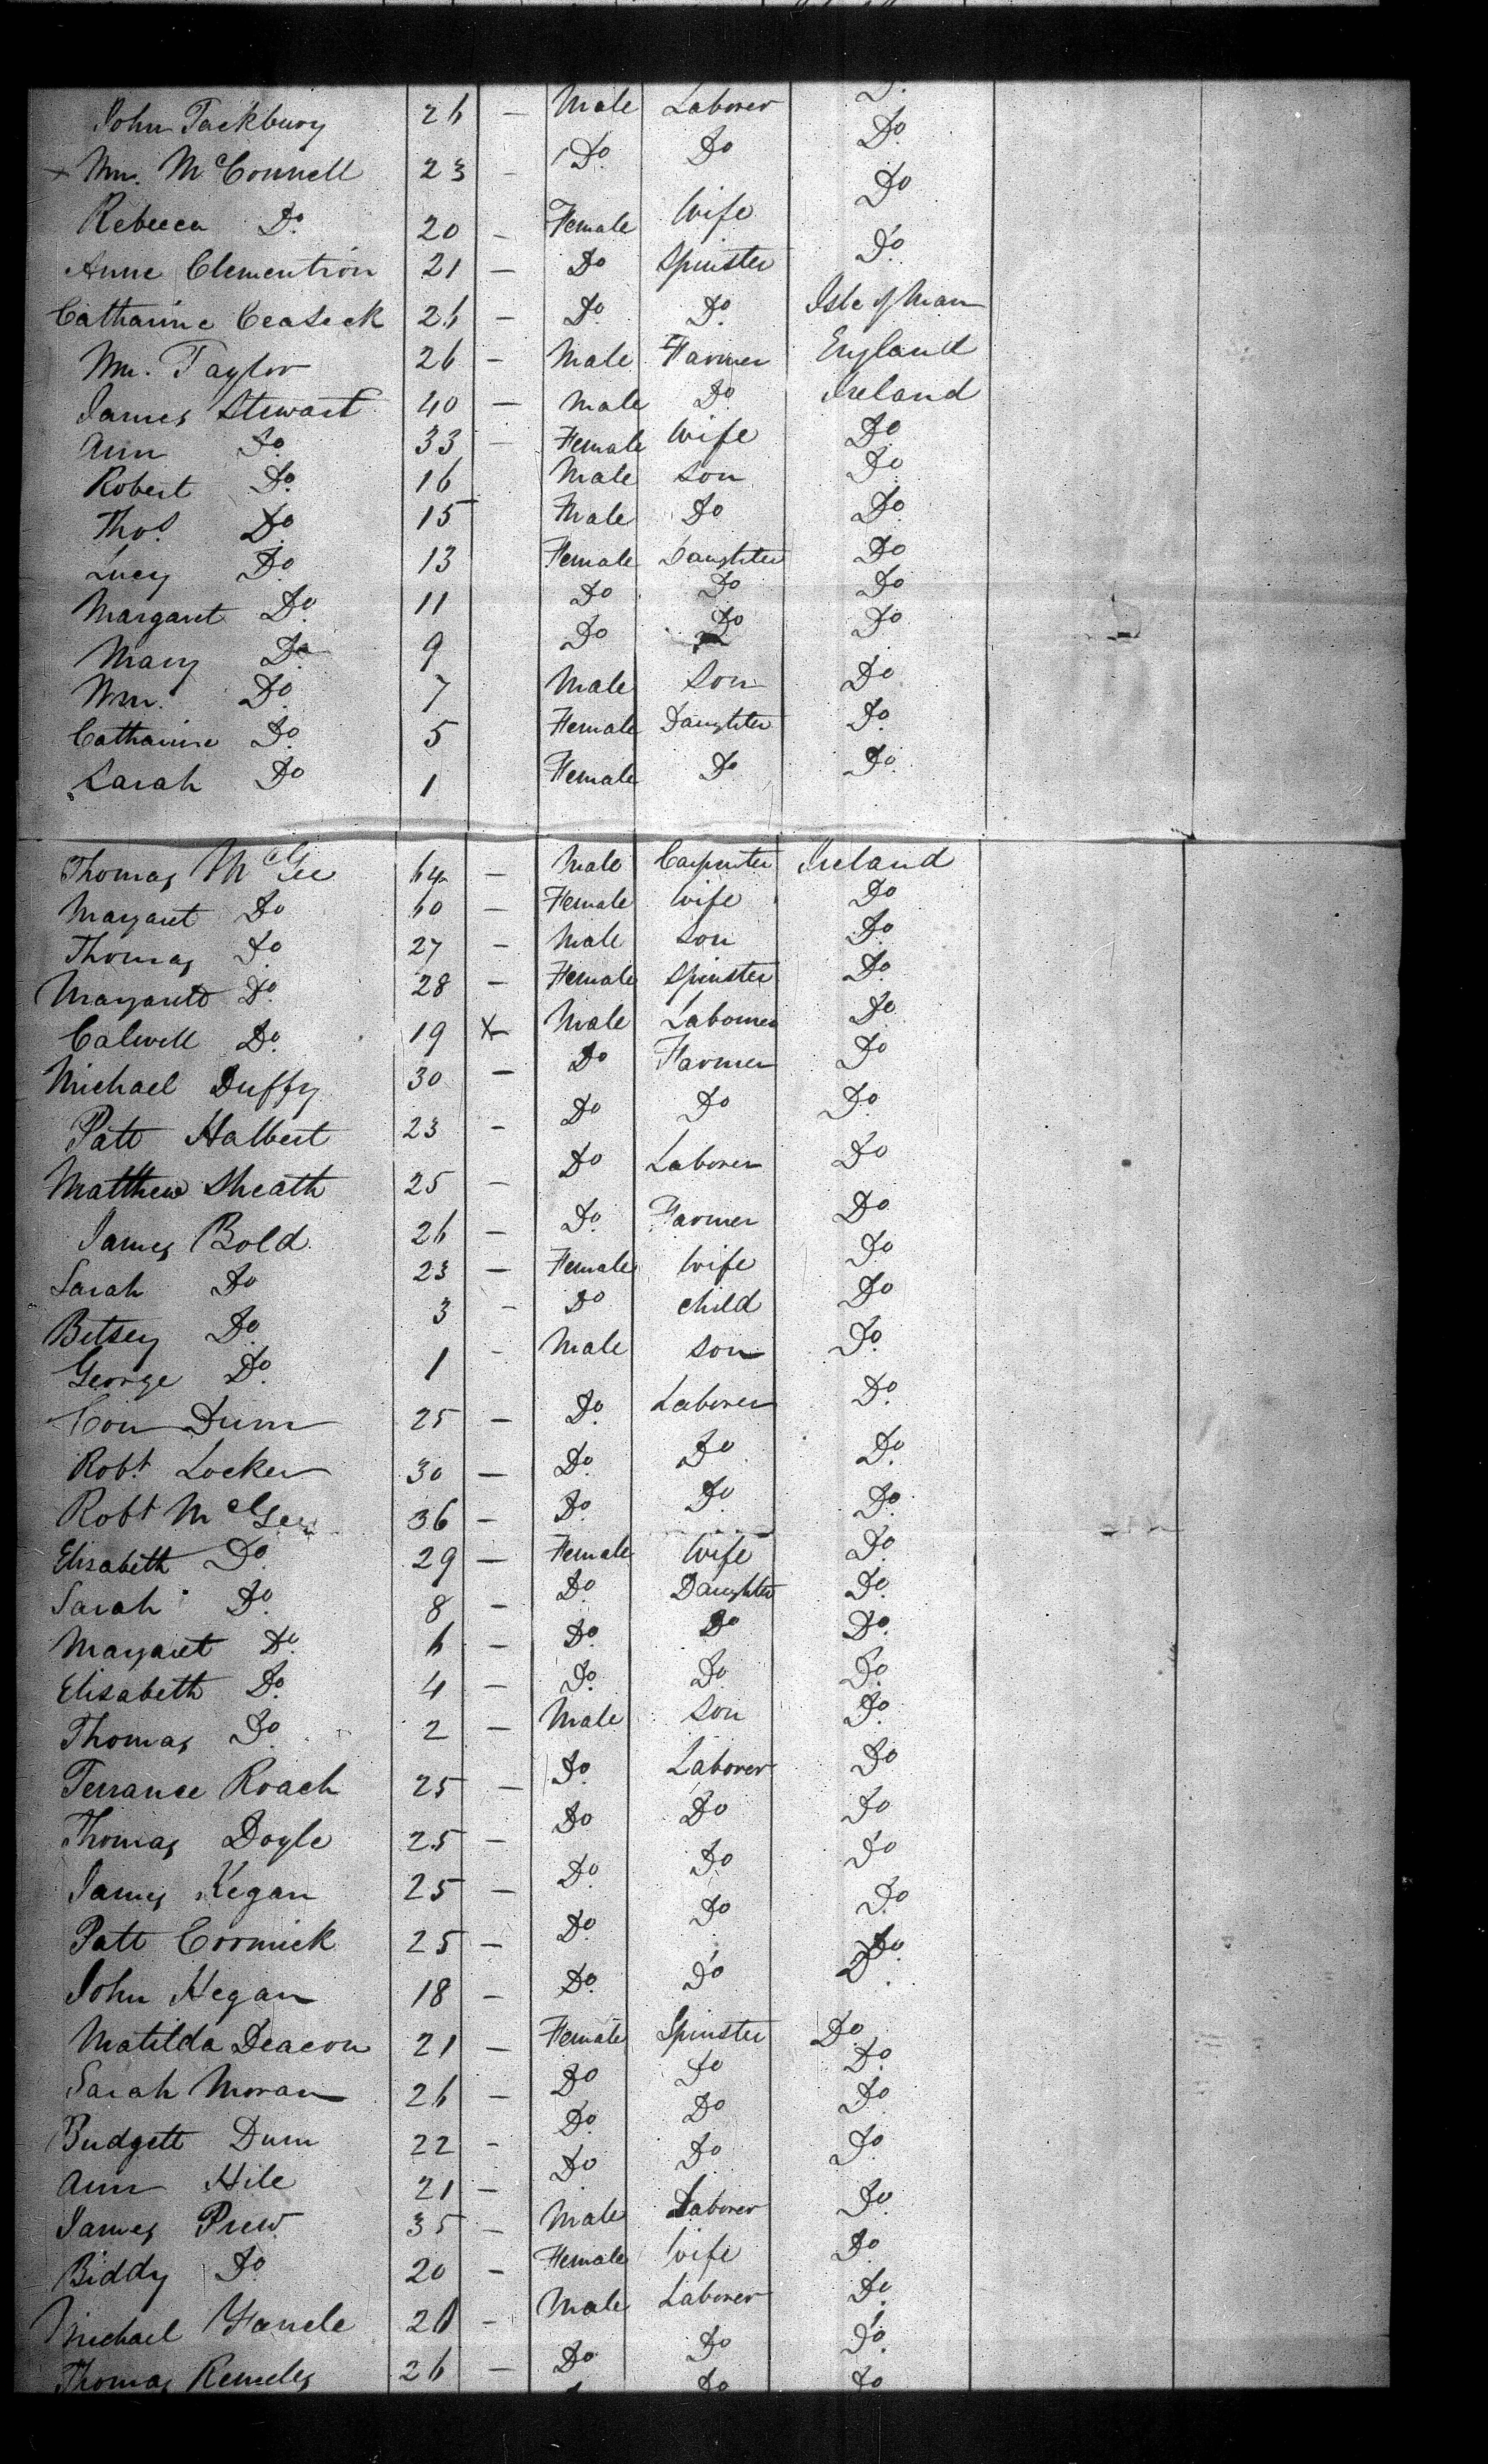 John Tackbury 26 — Male Laborer Do
Wm. McConnell 23 - Do Do Do
Rebecca Do 20 — Female Wife Do
Anne Clemention 21 — Do Spinster Do
Catharine Ceaseck 26 — Do Do Isle of Man
Wm. Taylor 26 - Male Farmer England
James Stewart 40 — Male Do Ireland
Ann Do 33 - Female Wife Do
Robert Do 16 Male Son Do
Thos Do 15 Male Do Do
Lucy Do 13 Female Daughter Do
Margaret Do 11 Do Do Do
Mary Do 9 Do Do Do
Wm. Do 7 Male Son Do
Catharine Do 5 Female Daughter Do
Sarah Do 1 Female Do Do
Thomas McGee 64 — Male Carpenter Ireland
Margaret Do 60 — Female Wife Do
Thomas Do 27 - Male Son Do
Margarett Do 28 - Female Spinster Do
Calwell Do 19 x Male Labourer Do
Michael Duffy 30 — Do Farmer Do
Patt Halbert 23 - Do Do Do
Matthew Sheath 25 — Do Laborer Do
James Bold 26 — Do Farmer Do
Sarah Do 23 — Female Wife Do
Betsey Do 3 - Do Child Do
George Do 1 - Male Son Do
Con Dunn 25 — Do Laborer Do
Robt Locker 30 — Do Do Do
Robt McGee 36 — Do Do Do
Elisabeth Do 29 — Female Wife Do
Sarah Do 8 - Do Daughter Do
Margaret Do 6 — Do Do Do
Elisabeth Do 4 — Do Do Do
Thomas Do 2 — Male Son Do
Terrance Roach 25 — Do Laborer Do
Thomas Doyle 25 — Do Do Do
James Kegan 25 — Do Do Do
Patt Cormick 25 — Do Do Do
John Hegan 18 — Do Do Do
Matilda Deacon 21 — Female Spinster Do
Sarah Moran 26 — Do Do Do
Bridgett Dunn 22 - Do Do Do
Ann Hile 21 — Do Do Do
James Prew 35 — Male Laborer Do
Biddy Do 20 — Female Wife Do
Michael 20 - Male Laborer Do
Thomas 26 — Do Do Do
Do Do